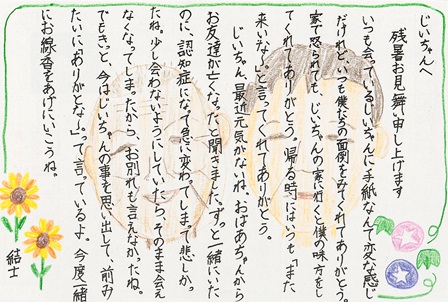 じいちゃんへ
残暑お見舞い申し上げます
いつも会っているじいちゃんに手紙なんて変な感じ
だけれど、いつも僕たちの面倒をみてくれてありがとう。
家で怒られても、じいちゃんの家に行くと僕の味方をし
てくれてありがとう。帰る時にはいつも「また
来いなぁ」と言ってくれてありがとう。
じいちゃん、最近元気がないね。おばあちゃんから
お友達が亡くなったと聞きました。ずっと一緒にいた
のに、認知症になって急に変わてしまって悲しかっ
たね。少し会わないようにしていたら、そのまま会え
なくなってしまったから、お別れも言えなかったね。
でもきっと、今はじいちゃんの事を思い出して、前み
たいに「ありがとなぁ」って言っているよ。今度一緒
にお線香をあげにいこうね。
結士